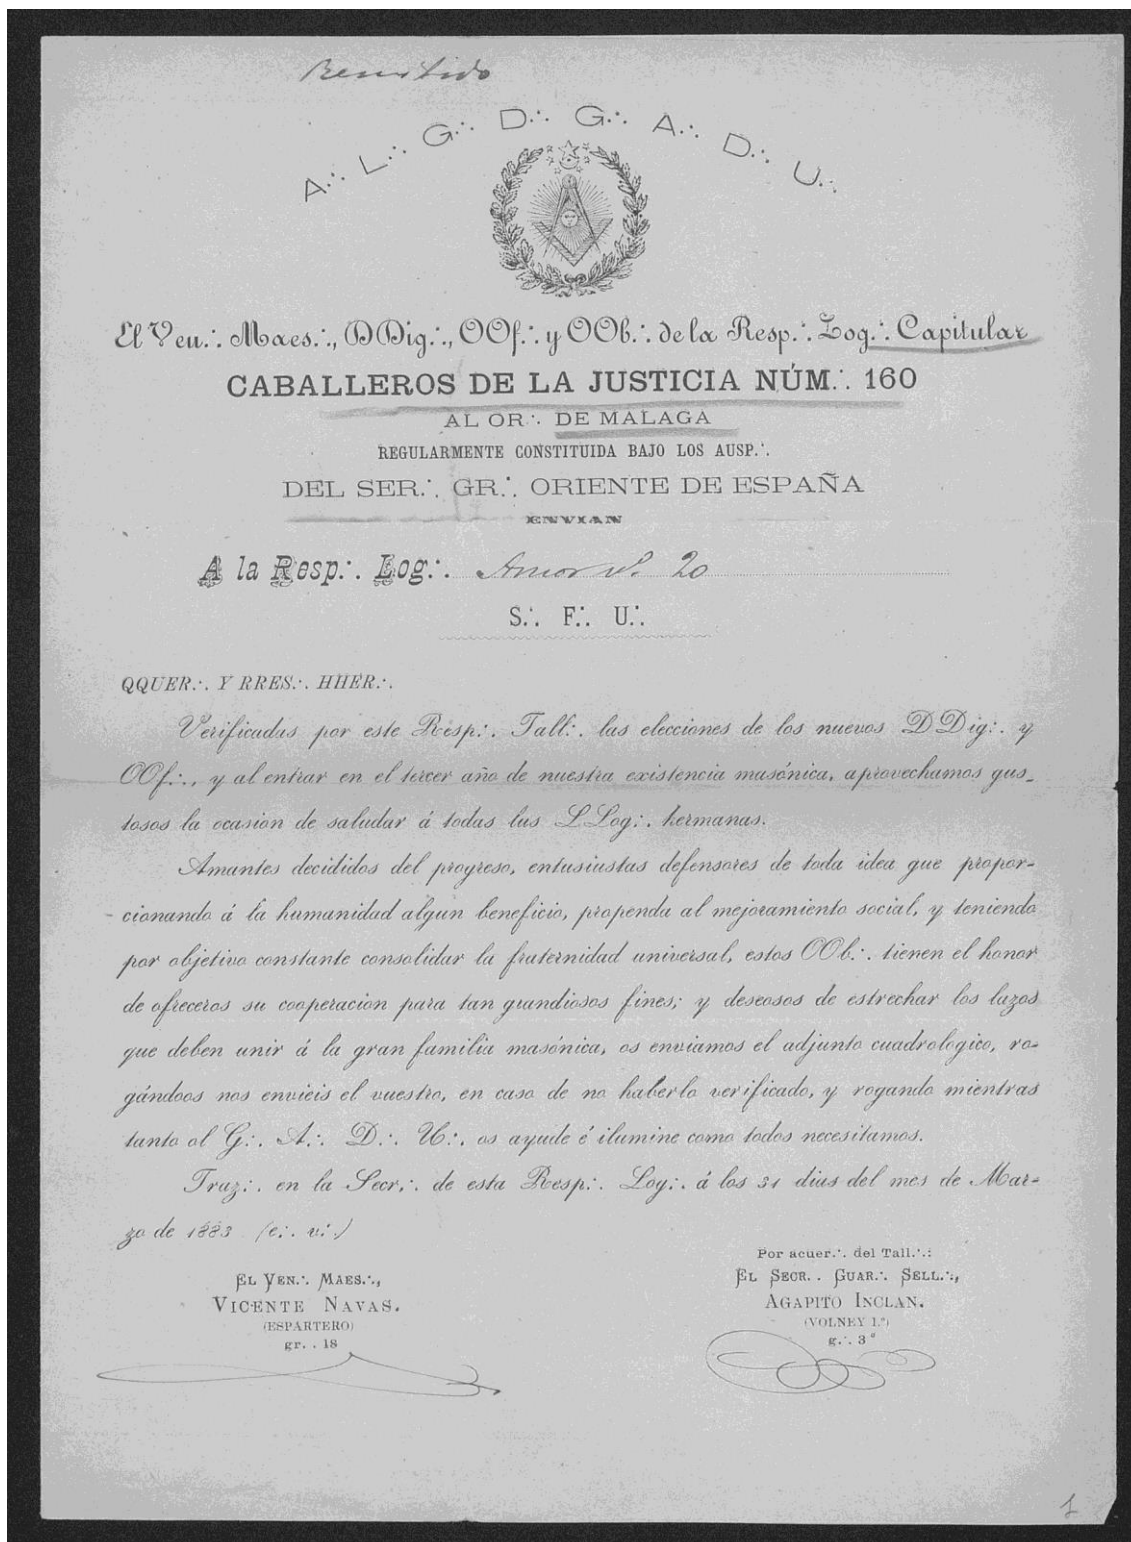 Remitido
A.·. L.·. G.·. D.·. G.·. A.·. D.·. U.·.
El Ven.·. Maes.·., DDig.·., OOf.·. y OOb.·. de la Resp.·. Log.·. Capitular
CABALLEROS DE LA JUSTICIA NÚM.·. 160
AL OR.·. DE MALAGA
REGULARMENTE CONSTITUIDA BAJO LOS AUSP.·.
DEL SER.·. GR.·. ORIENTE DE ESPAÑA
ENVIAN
A la Resp.·. Log.·. Amor nº. 20
S.·. F.·. U.·.
QQUER.·. Y RRES.·. HHER.·.
Verificadas por este Resp.·. Tall.·. las elecciones de los nuevos DDig.·. y
OOf.·., y al entrar en el tercer año de nuestra existencia masónica, aprovechamos gus-
tosos la ocasion de saludar á todas las LLog.·. hermanas.
Amantes decididos del progreso, entusiastas defensores de toda idea que propor-
cionando á la humanidad algun beneficio, propenda al mejoramiento social, y teniendo
por objetivo constante consolidar la fraternidad universal, estos OOb.·. tienen el honor
de ofreceros su cooperacion para tan grandiosos fines; y deseosos de estrechar los lazos
que deben unir á la gran familia masónica, os enviamos el adjunto cuadrologico, ro-
gándoos nos envieis el vuestro, en caso de no haberlo verificado, y rogando mientras
tanto al G.·. A.·. D.·. U.·. os ayude é ilumine como todos necesitamos.
Traz.·. en la Secr.·. de esta Resp.·. Log.·. á los 31 dias del mes de Mar-
zo de 1883 (e.·. v.·.)
EL VEN.·. MAES.·.,
VICENTE NAVAS.
(ESPARTERO)
gr.·. 18
Por acuer.·. del Tall.·.:
EL SECR.·. GUAR.·. SELL.·.,
AGAPITO INCLAN.
(VOLNEY 1.º)
g.·. 3º
1